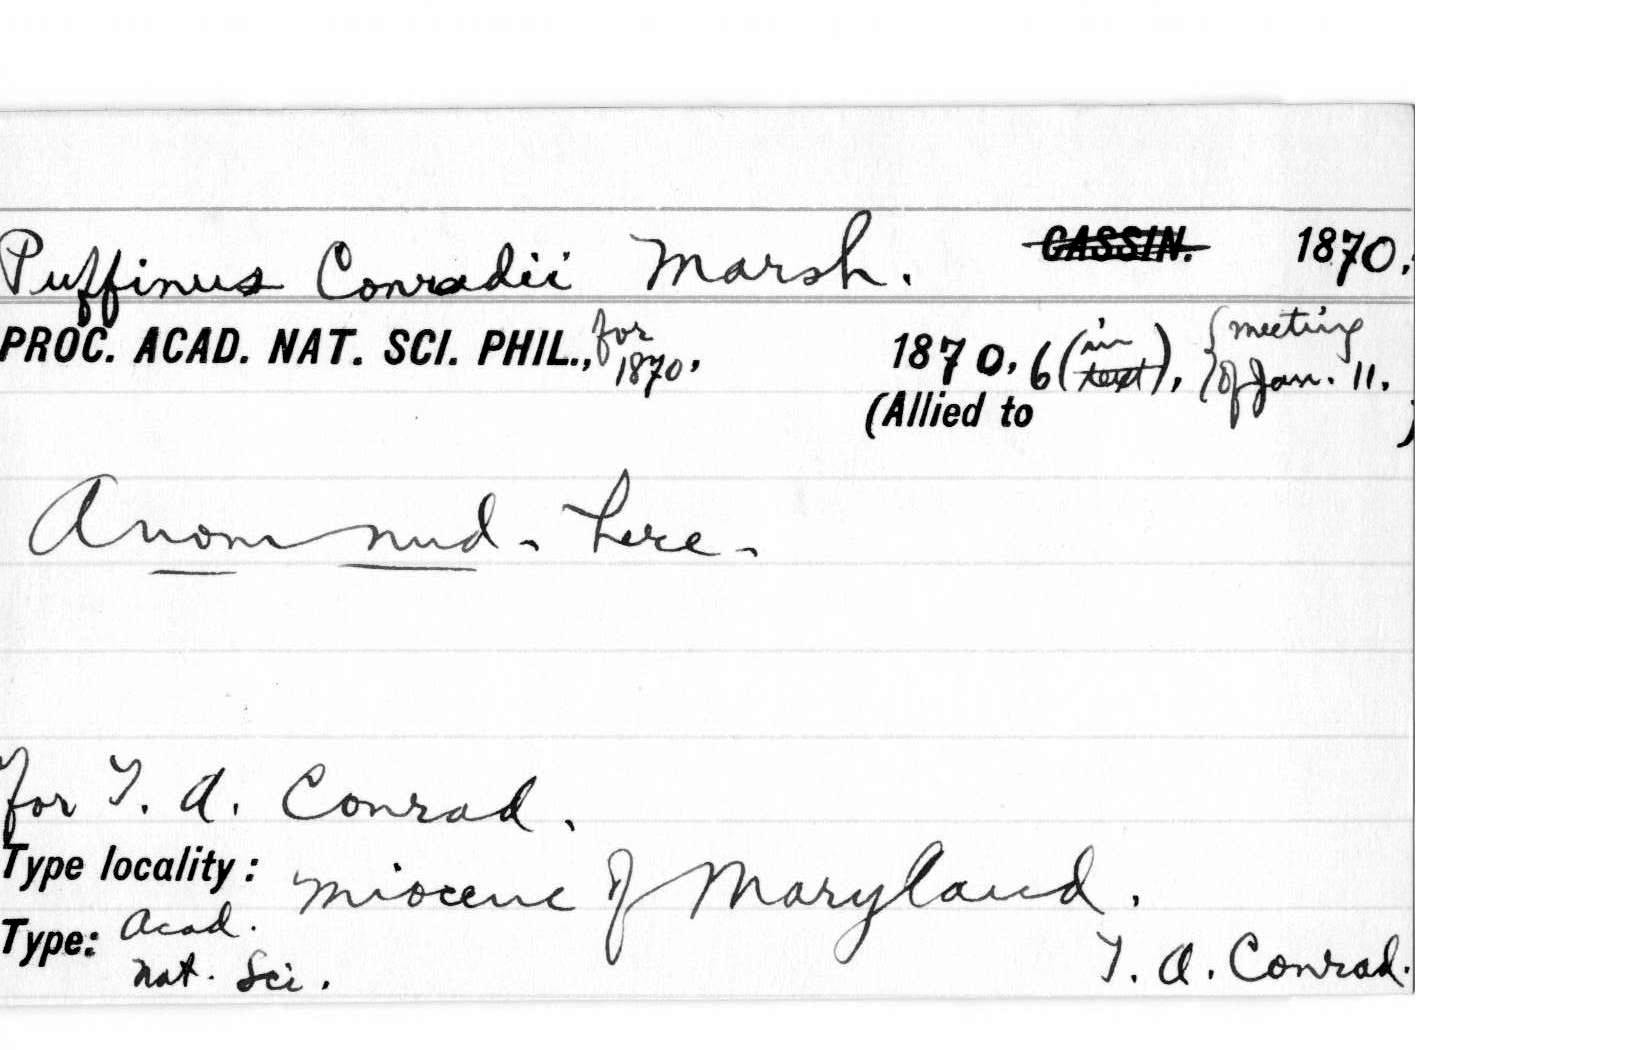 Puffinus Conradii Marsh. CASSIN. 1870.
PROC. ACAD. NAT. SCI. PHIL., for 1870, 1870, 6 (in text), {meeting of Jan. 11.
(Allied to )
A nom nud. here.
for T. A. Conrad.
Type locality: Miocene of Maryland.
Type: Acad. Nat. Sci. T. A. Conrad.